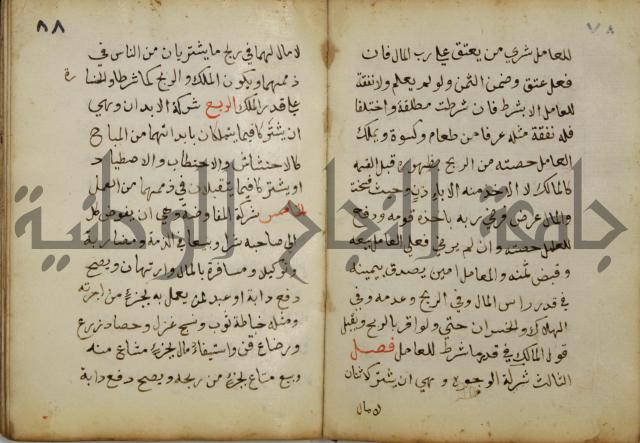 ٧٨
للعامل شري من يعتق علي رب المال فان
فعل عتق وضمن الثمن ولو لم يعلم ولا نفقة
للعامل الا بشرط فان شرطت مطلقة واختلفا
فله نفقة مثله عرفا من طعام وكسوة ويملك
العامل حصته من الربح بظهوره قبل القسمة
كالمالك لا الاخذ منه الا باذن وحيث فسخت
والمال عرض فرضي ربه باخذه قومه ودفع
للعامل حصته وان لم يرض فعلي العامل بيعه
وقبض ثمنه والعامل امين يصدق بيمينه
في قدر راس المال وفي الربح وعدمه وفي
الهلاك والخسران حتي ولو اقر بالربح ويقبل
قول المالك في قدر ما شرط للعامل فصل
الثالث شركة الوجوه وهي ان يشترك اثنان
لا مال
٨٨
لا مال لهما في ربح ما يشتريان من الناس في
ذممهما ويكون الملك والربح كما شرطا والخسارة
علي قدر الملك الرابع شركة الابدان وهي
ان يشتركا فيما يتملكان بابدانهما من المباح
كالاحتشاش والاحتطاب والاصطياد
او يشتركا فيما يتقبلان في ذممهما من العمل
الخامس شركة المفاوضة وهي ان يفوض كل
الي صاحبه شرا وبيعا في الذمة ومضاربة
وتوكيل ومسافرة بالمال وارتهان ويصح
دفع دابة او عبد لمن يعمل به بجزء من اجرته
ومثله خياطة ثوب ونسج غزل وحصاد زرع
ورضاع قن واستيفاء مال بجزء مشاع منه
وبيع متاع بجزء من ربحه ويصح دفع دابة
جامعة النجاح الوطنية